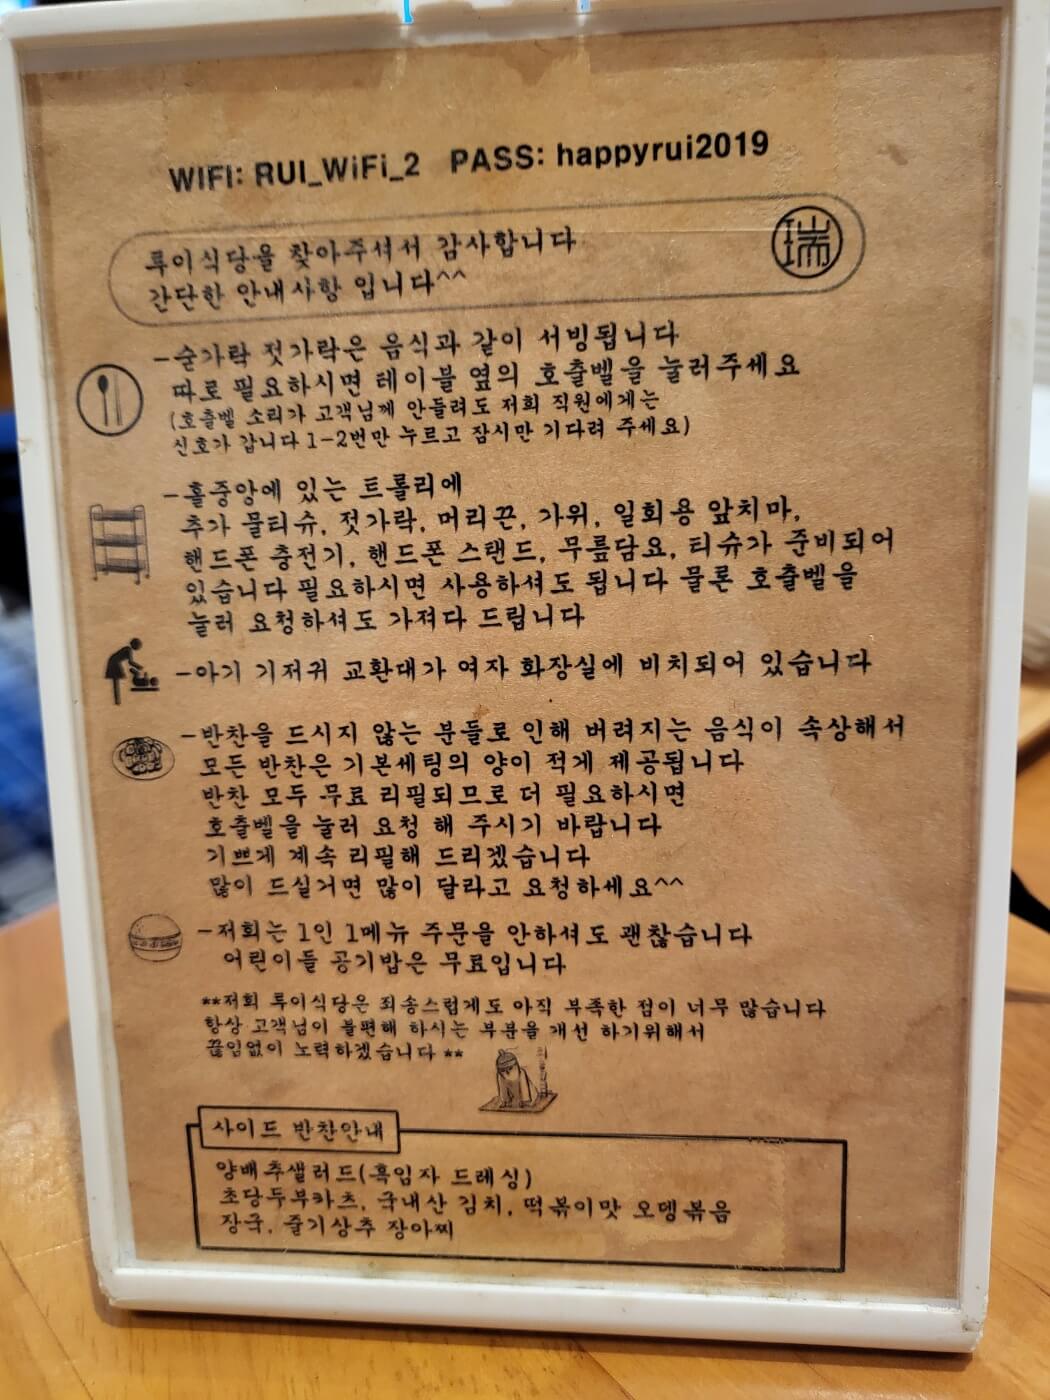 WIFI: RUI_WiFi_2 PASS: happyrui2019
루이식당을 찾아주셔서 감사합니다
간단한 안내사항 입니다^^
瑞
-숟가락 젓가락은 음식과 같이 서빙됩니다
따로 필요하시면 테이블 옆의 호출벨을 눌러주세요
(호출벨 소리가 고객님께 안들려도 저희 직원에게는
신호가 갑니다 1-2번만 누르고 잠시만 기다려 주세요)
-홀중앙에 있는 트롤리에
추가 물티슈, 젓가락, 머리끈, 가위, 일회용 앞치마,
핸드폰 충전기, 핸드폰 스탠드, 무릎담요, 티슈가 준비되어
있습니다 필요하시면 사용하셔도 됩니다 물론 호출벨을
눌러 요청하셔도 가져다 드립니다
-아기 기저귀 교환대가 여자 화장실에 비치되어 있습니다
-반찬을 드시지 않는 분들로 인해 버려지는 음식이 속상해서
모든 반찬은 기본세팅의 양이 적게 제공됩니다
반찬 모두 무료 리필되므로 더 필요하시면
호출벨을 눌러 요청 해 주시기 바랍니다
기쁘게 계속 리필해 드리겠습니다
많이 드실거면 많이 달라고 요청하세요^^
-저희는 1인 1메뉴 주문을 안하셔도 괜찮습니다
어린이들 공기밥은 무료입니다
**저희 루이식당은 죄송스럽게도 아직 부족한 점이 너무 많습니다
항상 고객님이 불편해 하시는 부분을 개선 하기위해서
끊임없이 노력하겠습니다 **
사이드 반찬안내
양배추샐러드(흑임자 드레싱)
초당두부카츠, 국내산 김치, 떡볶이맛 오뎅볶음
장국, 줄기상추 장아찌